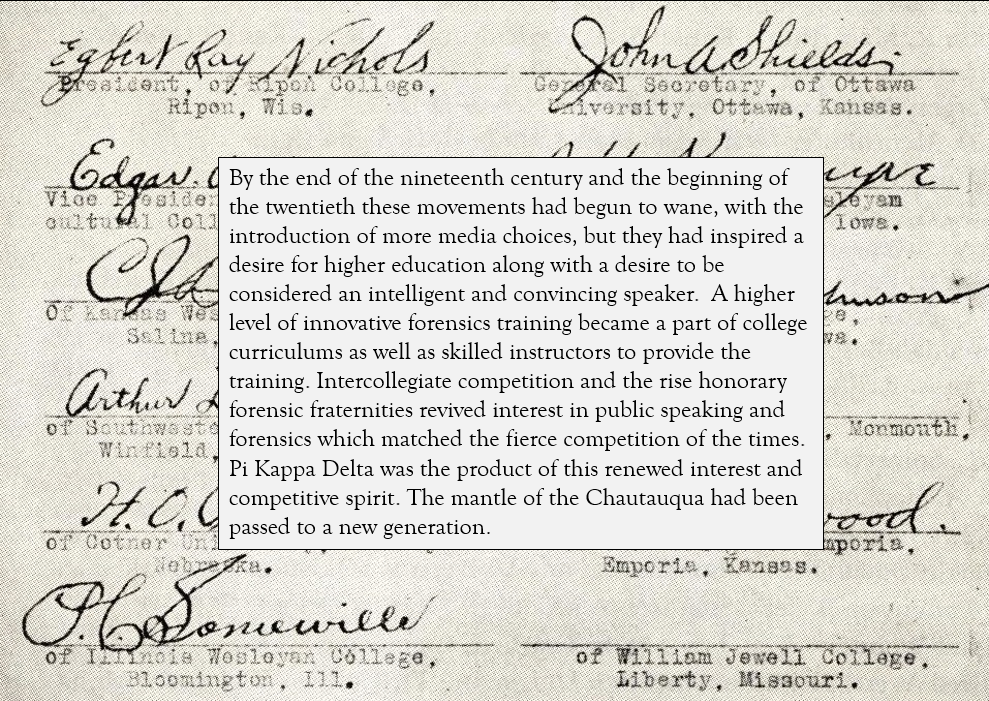 Egbert Ray Nichols
President, of Ripon College,
Ripon, Wis.
John A Shields
General Secretary, of Ottawa
University, Ottawa, Kansas.
Edgar
Vice Presiden
cultural Coll
sleyan
Iowa.
By the end of the nineteenth century and the beginning of
the twentieth these movements had begun to wane, with the
introduction of more media choices, but they had inspired a
desire for higher education along with a desire to be
considered an intelligent and convincing speaker.  A higher
level of innovative forensics training became a part of college
curriculums as well as skilled instructors to provide the
training. Intercollegiate competition and the rise honorary
forensic fraternities revived interest in public speaking and
forensics which matched the fierce competition of the times.
Pi Kappa Delta was the product of this renewed interest and
competitive spirit. The mantle of the Chautauqua had been
passed to a new generation.
Of Kansas Wes
Salina,
Arthur
of Southweste
Winfield,
, Monmouth,
H. O.
of Cotner Un
Nebraska.
wood.
mporia,
Emporia, Kansas.
P. C. Somerville
of Illinois Wesleyan College,
Bloomington, Ill.
of William Jewell College,
Liberty, Missouri.